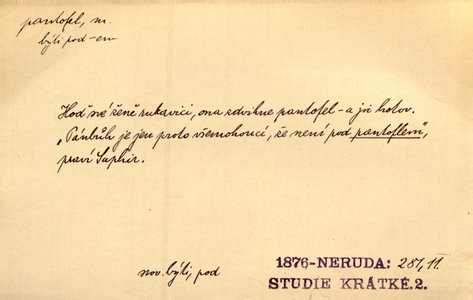 pantofel, m.
býti pod -em
Hoď své ženě rukavici, ona zdvihne pantofel – a jsi hotov.
„Pánbůh je jen proto všemohoucí, že není pod pantoflem",
praví Saphir.
nov. býti, pod
1876-NERUDA: 281, 11.
STUDIE KRÁTKÉ. 2.